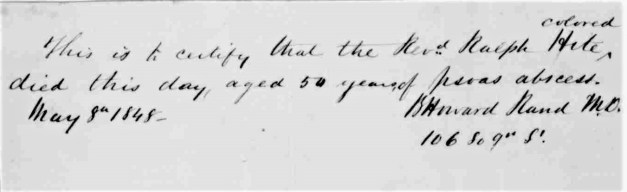 colored
This is to certify that the Revd. Ralph Hite,
died this day, aged 50 years, of psoas abscess.
May 8th 1848- B Howard Rand M.D.
106 So 9th St.